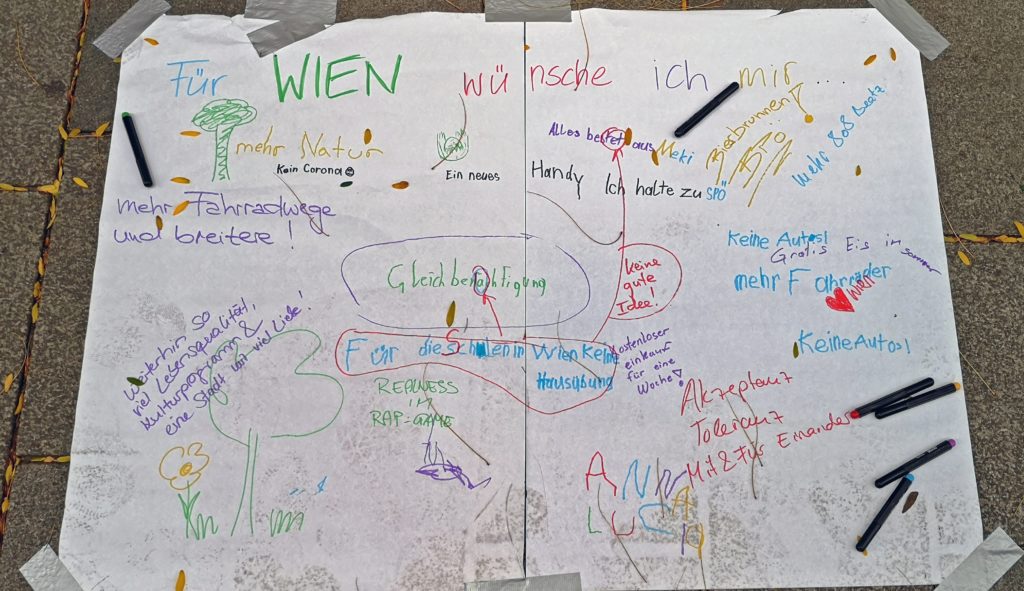 Für WIEN wünsche ich mir ...
mehr Natur
Kein Corona
Ein neues
Handy
Alles betet aus
Meki
Bierbrunnen!
BPÖ
mehr 808 Beatz
Ich halte zu SPÖ
mehr Fahrradwege
und breitere!
Keine Autos!
Gratis Eis im sommer
mehr Fahrräder
Wien
Gleichberechtigung
Keine
gute
Idee!
Für die Schulen in Wien Keine
Hausübung
Kostenloser
einkauf
für eine
Woche!
Keine Autos!
So
weiterhin
viel Lebensqualität,
Kulturprogramm &
eine Stadt von viel Liebe!
REALNESS
im
RAP-GAME
Akzeptanz
Toleranz
Mit & Für Einander
ANNA
LUCA